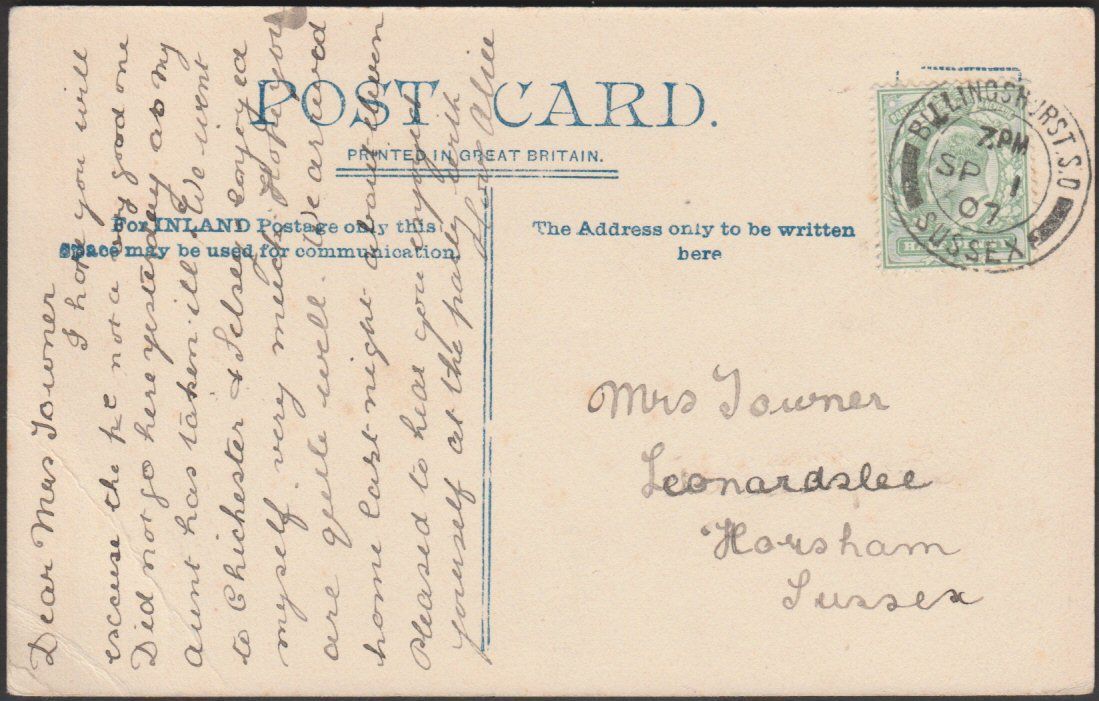 POST CARD.
PRINTED IN GREAT BRITAIN.
For INLAND Postage only this
Space may be used for communication.
The Address only to be written
here
BILLINGSHURST S.O
7.PM
SP 1
07
SUSSEX
Dear Mrs Towner
I hope you will
excuse the pc not a very good one
Did not go here yesterday as my
aunt has taken ill. We went
to Chichester & Selsey enjoyed
myself very much. Hope you
are quite well. We arrived
home last night about eleven
Pleased to hear you enjoyed
yourself at the party with
from Alice
Mrs Towner
Leonardslee
Horsham
Sussex